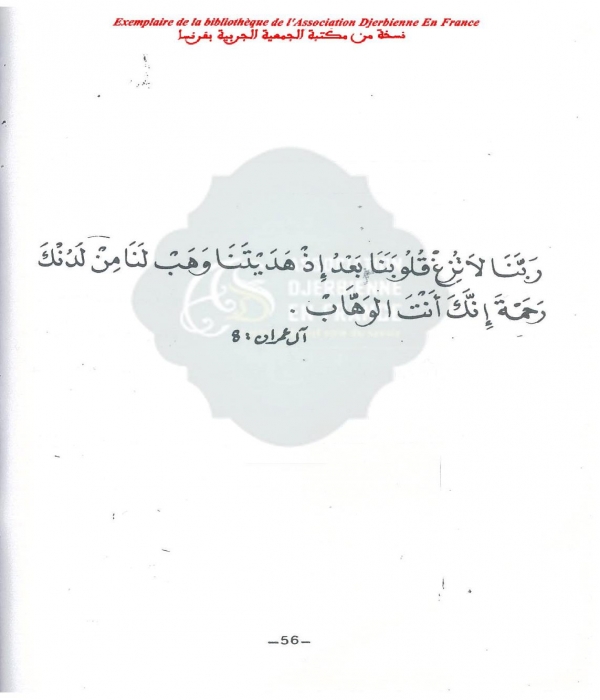 Exemplaire de la bibliothèque de l'Association Djerbienne En France
نسخة من مكتبة الجمعية الجربية بفرنسا
رَبَّنَا لاَ تُزِغْ قُلُوبَنَا بَعْدَ إِذْ هَدَيْتَنَا وَهَبْ لَنَا مِنْ لَدُنْكَ
رَحْمَةً إِنَّكَ أَنْتَ الوَهَّابْ .
آل عمران : 8
DJERBIENNE
—56—